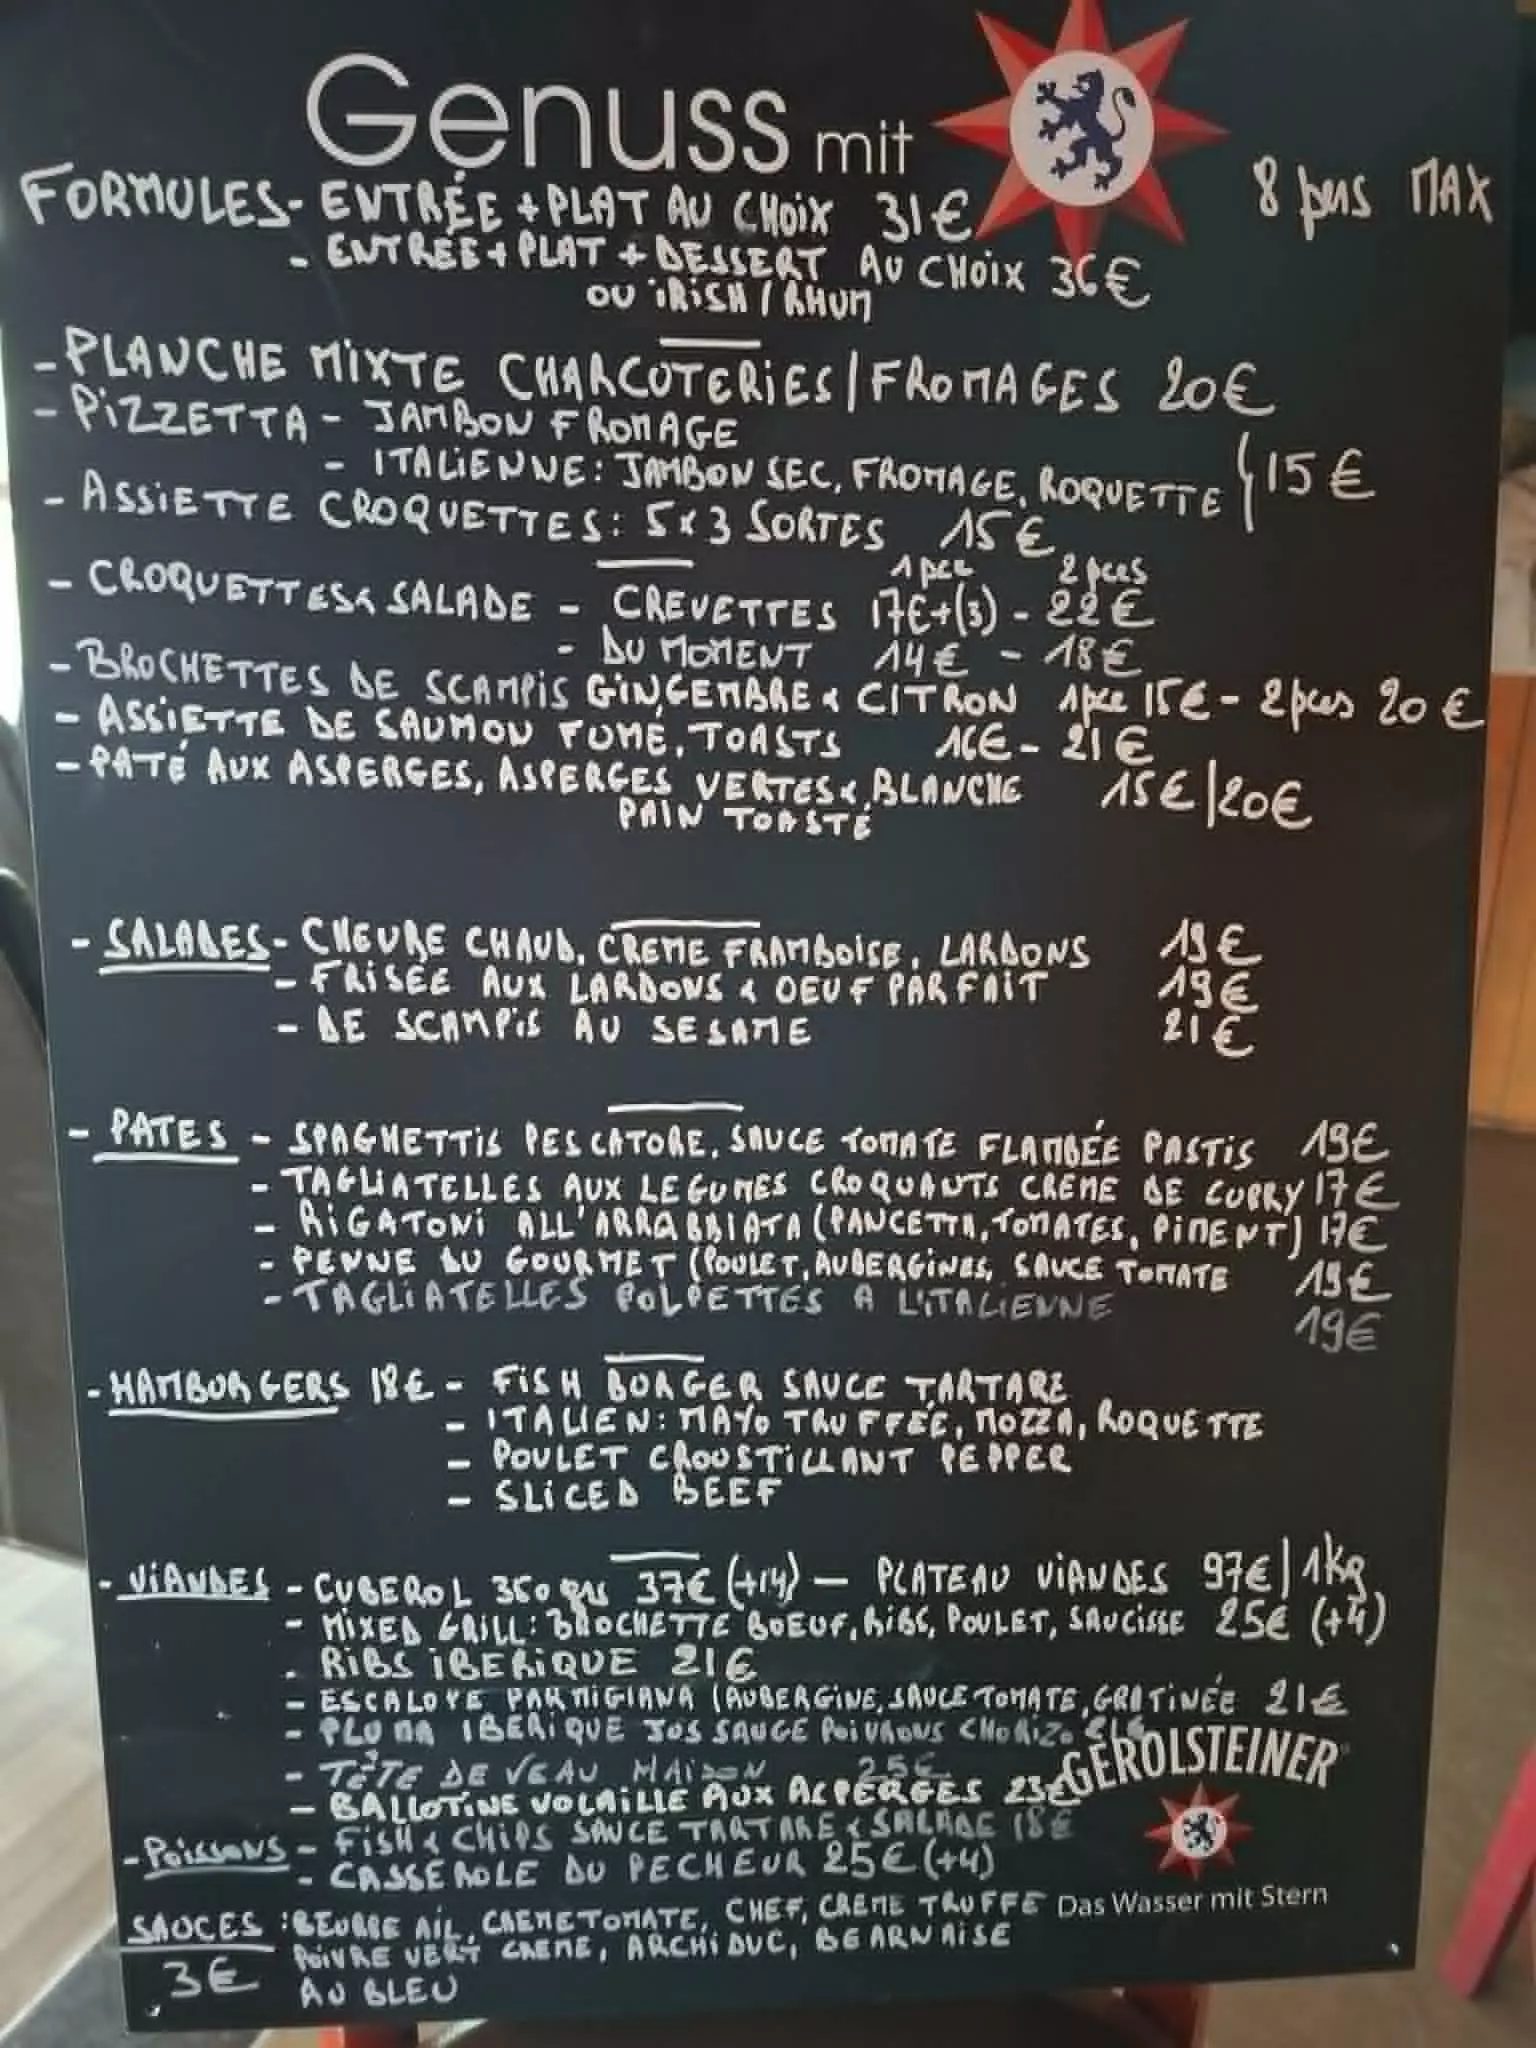 Genuss mit
FORMULES - ENTRÉE + PLAT AU CHOIX 31€
8 pers MAX
- ENTRÉE + PLAT + DESSERT AU CHOIX 36€
OU IRISH / RHUM
- PLANCHE MIXTE CHARCUTERIES / FROMAGES 20€
- PIZZETTA - JAMBON FROMAGE
- ITALIENNE: JAMBON SEC, FROMAGE, ROQUETTE } 15€
- ASSIETTE CROQUETTES: 5x3 SORTES 15€
1 pce 2 pces
- CROQUETTES & SALADE - CREVETTES 17€+(3) - 22€
- DU MOMENT 14€ - 18€
- BROCHETTES DE SCAMPIS GINGEMBRE & CITRON 1pce 15€ - 2 pces 20€
- ASSIETTE DE SAUMON FUMÉ, TOASTS 16€ - 21€
- PATÉ AUX ASPERGES, ASPERGES VERTES & BLANCHE 15€/20€
PAIN TOASTÉ
- SALADES - CHEVRE CHAUD, CREME FRAMBOISE, LARDONS 19€
- FRISÉE AUX LARDONS & OEUF PARFAIT 19€
- DE SCAMPIS AU SESAME 21€
- PATES - SPAGHETTIS PESCATORE, SAUCE TOMATE FLAMBÉE PASTIS 19€
- TAGLIATELLES AUX LEGUMES CROQUANTS CREME DE CURRY 17€
- RIGATONI ALL'ARRABBIATA (PANCETTA, TOMATES, PIMENT) 17€
- PENNE DU GOURMET (POULET, AUBERGINES, SAUCE TOMATE 19€
- TAGLIATELLES POLPETTES A L'ITALIENNE 19€
- HAMBURGERS 18€ - FISH BURGER SAUCE TARTARE
- ITALIEN: MAYO TRUFFÉE, MOZZA, ROQUETTE
- POULET CROUSTILLANT PEPPER
- SLICED BEEF
- VIANDES - CUBEROL 350 grs 37€ (+14) - PLATEAU VIANDES 97€ / 1kg
- MIXED GRILL: BROCHETTE BOEUF, RIBS, POULET, SAUCISSE 25€ (+4)
- RIBS IBERIQUE 21€
- ESCALOPE PARMIGIANA (AUBERGINE, SAUCE TOMATE, GRATINÉE 21€
- PLUMA IBERIQUE JUS SAUGE POIVRONS CHORIZO
- TÊTE DE VEAU MAISON 25€
- BALLOTINE VOLAILLE AUX ASPERGES 23€
GEROLSTEINER
- POISSONS - FISH & CHIPS SAUCE TARTARE & SALADE 18€
- CASSEROLE DU PECHEUR 25€ (+4)
Das Wasser mit Stern
SAUCES: BEURRE AIL, CREME TOMATE, CHEF, CREME TRUFFE
POIVRE VERT CREME, ARCHIDUC, BEARNAISE
3€ AU BLEU